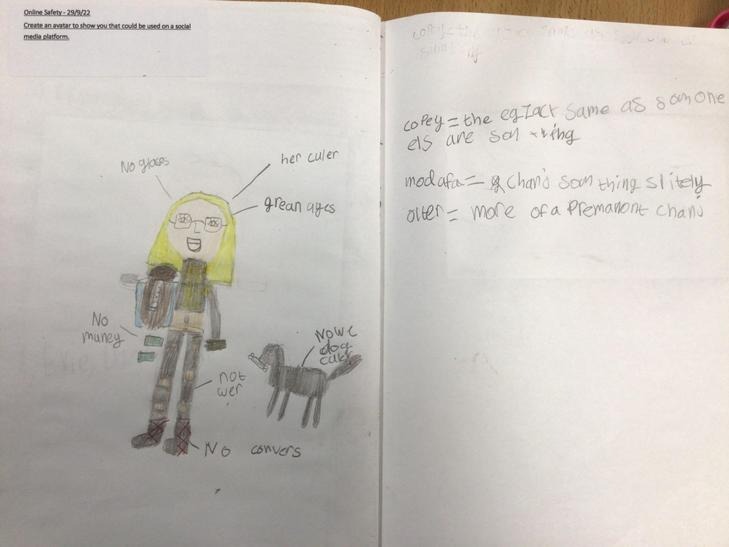 Online Safety - 29/9/22
Create an avatar to show you that could be used on a social
media platform.
No glases
her culer
grean ayes
No
muney
Nowe
dog
not
wer
No convers
copey = the egzact same as som one
els are som thing
modafa = chans som thing slitely
olter = more of a premanont chans